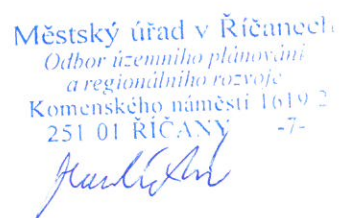 Městský úřad v Říčanech
Odbor územního plánování
a regionálního rozvoje
Komenského náměstí 1619/2
251 01 ŘÍČANY -7-